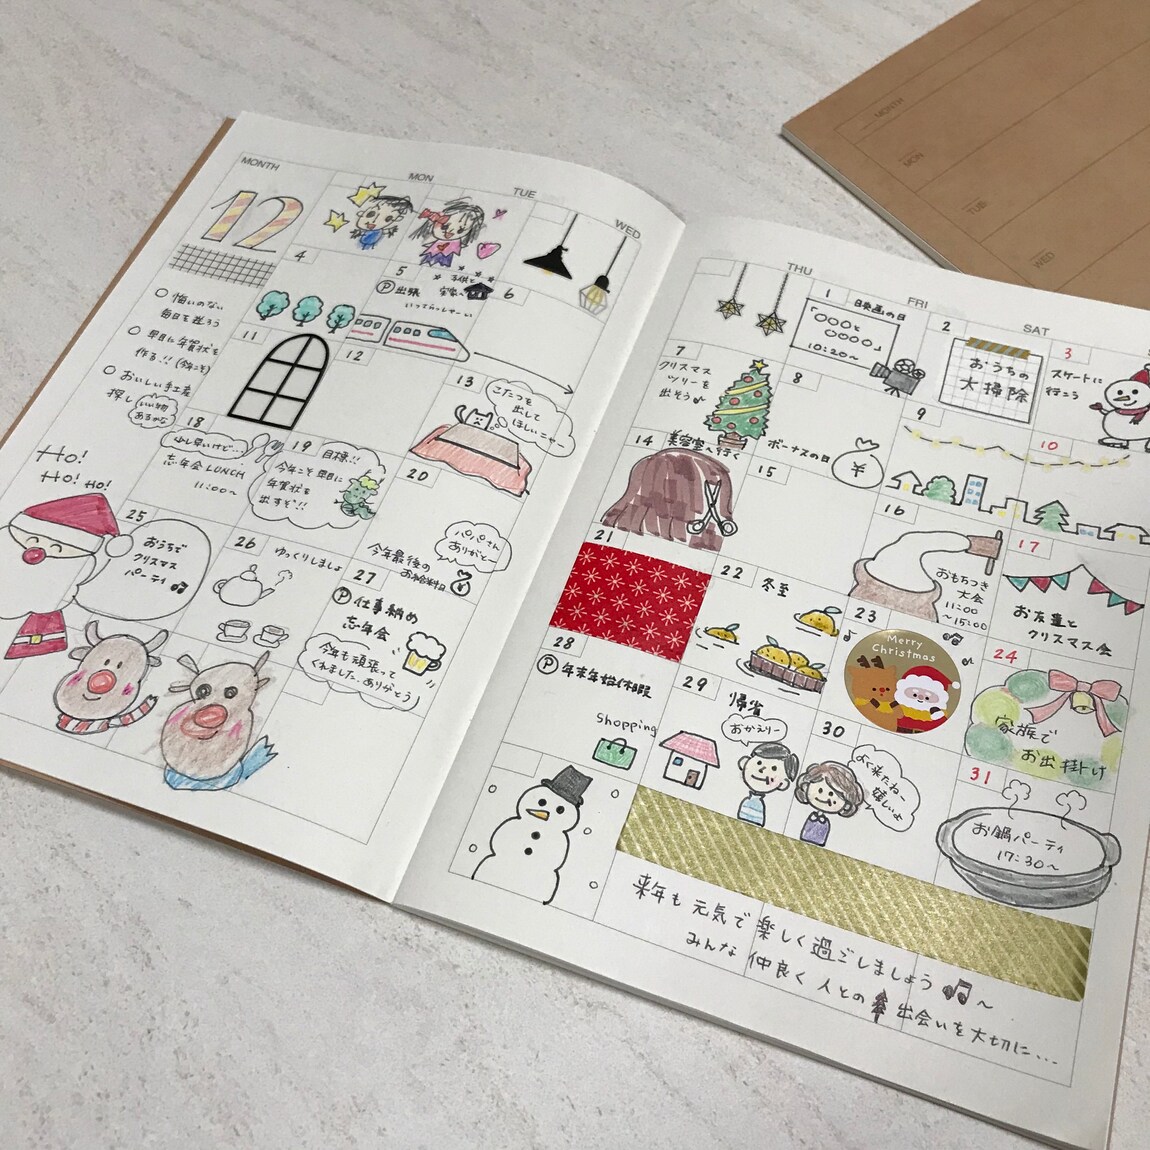 MONTH
MON
TUE
WED
12
○ 悔いのない
毎日を送ろう
○ 早目に年賀状を
作る!!(今年こそ)
○ おいしい手土産
探し
いい物
あるかな
4
5
Ⓟ出張
子供と
実家へ
いってらっしゃーい
6
11
12
13
こたつを
出して
ほしいニャー
18
少し早いけど…
忘年会LUNCH
11:00～
19
目標!!
今年こそ早目に
年賀状を
出すぞ!!
20
今年最後の
お給料日
パパさん
ありがとー
¥
HO!
HO! HO!
25
おうちで
クリスマス
パーティ
26
ゆっくりしましょ
27
Ⓟ仕事納め
忘年会
今年も頑張って
くれました。ありがとう
THU
FRI
SAT
1
映画の日
「〇〇〇と
〇〇〇〇」
10:20～
2
おうちの
大掃除
3
スケートに
行こう
7
クリスマス
ツリーを
出そう♪
8
ボーナスの日
¥
9
10
14
美容室へ行く
15
16
おもちつき
大会
11:00
～15:00
17
お友達と
クリスマス会
21
22
冬至
23
Merry
Christmas
24
家族で
お出掛け
28
Ⓟ年末年始休暇
Shopping
29
帰省
おかえりー
30
よく来たねー
嬉しいよ
31
お鍋パーティ
17:30～
来年も元気で楽しく過ごしましょう♫～
みんな仲良く人との出会いを大切に...
MONTH
MON
TUE
WED